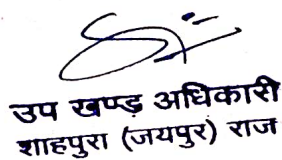 उप खण्ड अधिकारी
शाहपुरा (जयपुर) राज